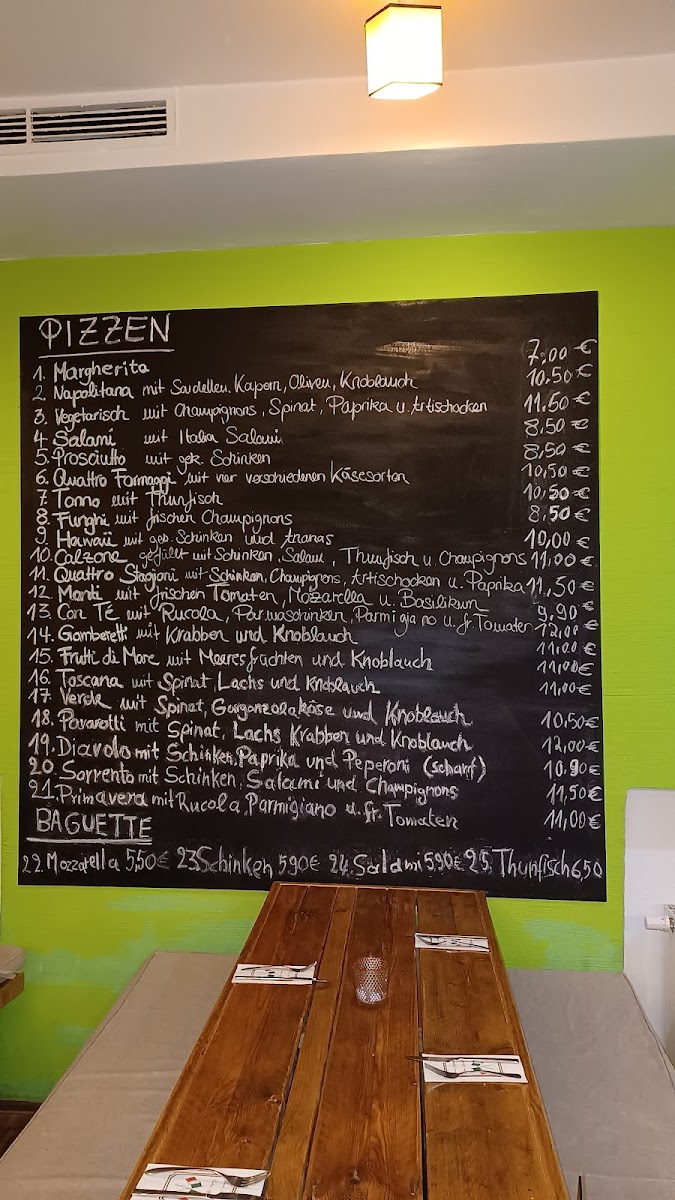 PIZZEN
1. Margherita 7,00 €
2. Napolitana mit Sardellen, Kapern, Oliven, Knoblauch 10.50 €
3. Vegetarisch mit Champignons, Spinat, Paprika u. Artischocken 11.50 €
4. Salami mit Italia Salami 8.50 €
5. Prosciutto mit gek. Schinken 8,50 €
6. Quattro Formaggi mit vier verschiedenen Käsesorten 10,50 €
7. Tonno mit Thunfisch 10,50 €
8. Funghi mit frischen Champignons 8,50 €
9. Hawaii mit gek. Schinken und Ananas 10,00 €
10. Calzone gefüllt mit Schinken, Salami, Thunfisch u. Champignons 11,00 €
11. Quattro Stagioni mit Schinken, Champignons, Artischocken u. Paprika 11,50 €
12. Monti mit frischen Tomaten, Mozzarella u. Basilikum 9.90 €
13. Con Te mit Rucola, Parmaschinken, Parmigiano u. fr. Tomaten 12,00 €
14. Gamberetti mit Krabben und Knoblauch 11,00 €
15. Frutti di Mare mit Meeresfrüchten und Knoblauch 11,00 €
16. Toscana mit Spinat, Lachs und Knoblauch 11,00 €
17. Verde mit Spinat, Gorgonzolakäse und Knoblauch 10,50 €
18. Pavarotti mit Spinat, Lachs Krabben und Knoblauch 12,00 €
19. Diavolo mit Schinken, Paprika und Peperoni (scharf) 10.90 €
20. Sorrento mit Schinken, Salami und Champignons 11,50 €
21. Primavera mit Rucola, Parmigiano u. fr. Tomaten 11,00 €
BAGUETTE
22. Mozzarella 5,50 € 23. Schinken 5,90 € 24. Salami 5,90 € 25. Thunfisch 6,50